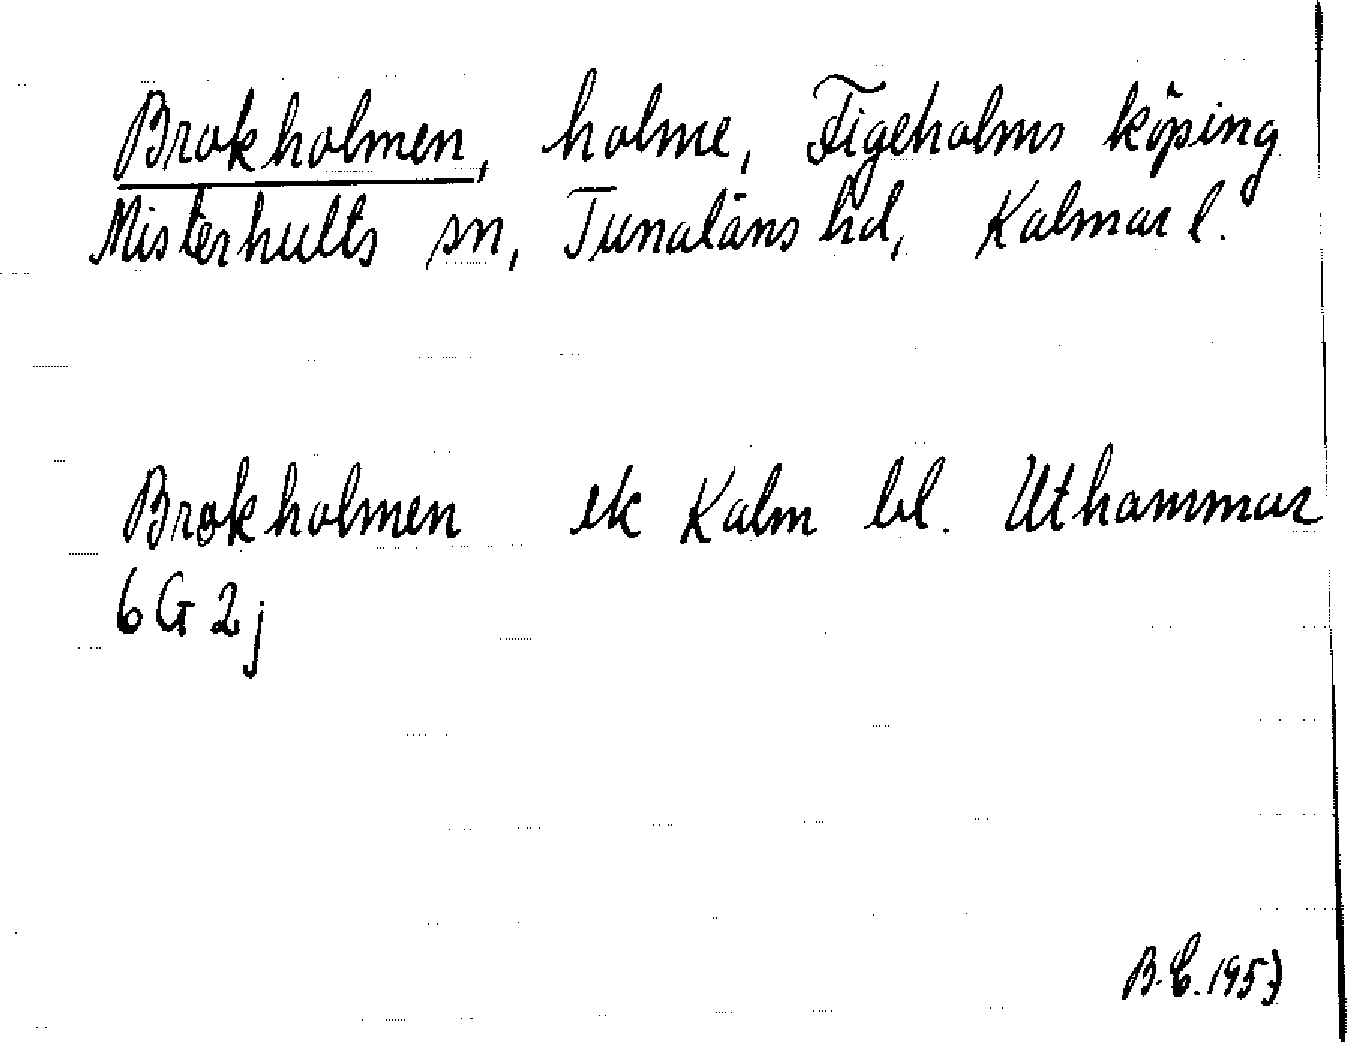 Brokholmen, holme, Figeholms köping
Misterhults sn, Tunaläns hd, Kalmar l.
Brokholmen ek Kalm bl. Uthammar
6G 2j
B.E. 1957